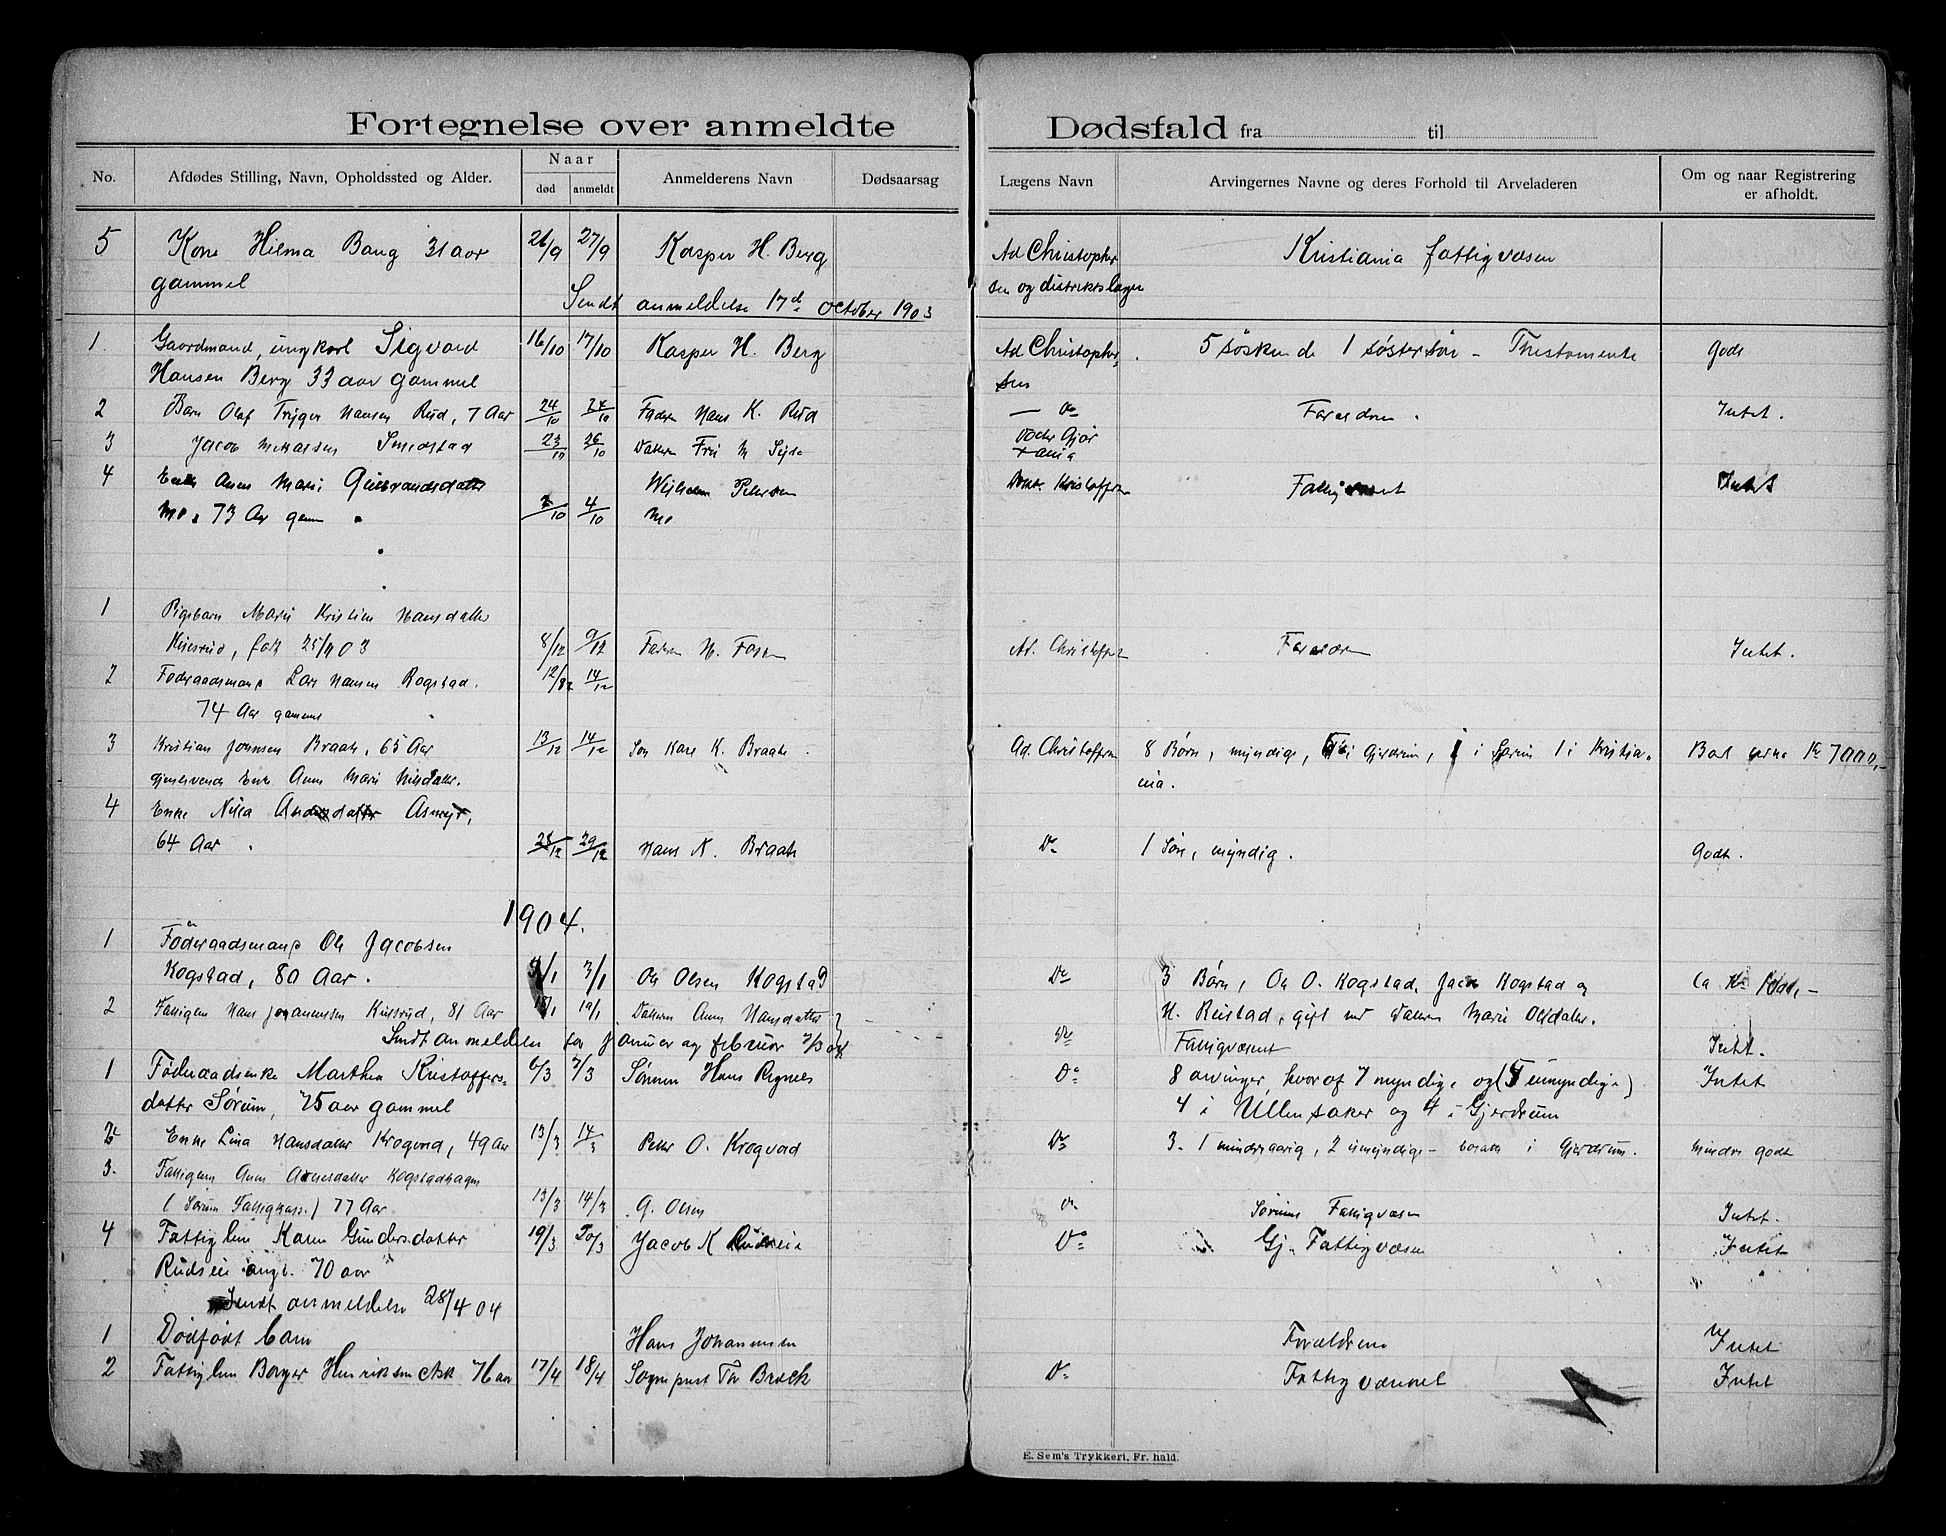 Fortegnelse over anmeldte Dødsfald fra til
No. Afdødes Stilling, Navn, Opholdssted og Alder. Naar død anmeldt Anmelderens Navn Dødsaarsag Lægens Navn Arvingernes Navne og deres Forhold til Arveladeren Om og naar Registrering er afholdt.
5 Kone Hilma Bang 31 aar 26/9 27/9 Kasper H. Berg Ad Christopher Kristiania fattigvæsen
gammel sen og distrikslæge
Sendt anmeldelse 17d October 1903
1. Gaardmand, ungkarl Sigvard 16/10 17/10 Kasper H. Berg Ad Christopher 5 søskende 1 søstersøn - Thestamente Godt
Hansen Berg 33 aar gammel sen
2 Barn Olaf Trygve Hansen Rud, 7 Aar 24/10 24/10 Faderen Hans K. Rud — Do Forældrene. Intet.
3 Jacob Mikalsen Smedstad 23/10 26/10 Datteren
4 Enke Anne Marie Gulbrandsdatter Wilhelm Petersen Kristoffersen Fattigvæsnet Intet
Mo, 73 Aar gam 2/10 4/10 Mo
1 Pigebarn Marie Kristine Hansdatter
født 25/9 03 8/12 9/12 Faderen H. Ad. Christoffersen Forældrene Intet.
2 Føderaadsmand Lars Hansen Rogstad. 12/12 14/12
74 Aar gammel
3 Kristian Johnsen Braate, 65 Aar 13/12 14/12 Søn Karl K. Braate. Ad. Christoffersen 8 Børn, myndige, i Gjerdrum, 1 i Sørum 1 i Kristia- Kr 7000,-
gjenlevende Enke Anne Marie Nilsdatter. nia.
4 Enke Nilia Andersdatter
64 Aar. 28/12 29/12 Hans K. Braate Do 1 Søn, myndig. Godt.
1904.
1 Føderaadsmand Ole Jacobsen
Kogstad, 80 Aar. 3/1 Ole Olsen Kogstad Do 3 Børn, Ole O. Kogstad, Kogstad og ca Kr
2 Fattigem Hans Johannessen 81 Aar 18/1 19/1 Datteren Anne Hansdatter H. Reistad, gift med Datteren Marie Olsdatter.
Sendt anmeldelse for Januar og februar 7/3 04 Do Fattigvæsnet Intet.
1 Føderaadsenke Marthea Kristoffers- 6/3 7/3 Sønnen Hans Rognes Do 8 arvinger hvoraf 7 myndige og (1 umyndige) Intet
datter Sørum, 75 aar gammel 4 i Ullensaker og 4 i Gjerdrum
2 Enke Lina Hansdatter Krogvold, 49 Aar 13/3 14/3 Peter O. Krogvold Do 3. 1 mindreaarig, 2 umyndige - bosatte i Gjerdrum. mindre godt
3. Fattiglem Anne Arnesdatter Kogstadhagen
(Sørum Fattigkasse) 77 Aar 13/3 14/3 G. Olsen Do Sørums Fattigvæsen Intet.
4 Fattiglem Karen Gundersdatter 19/3 20/3 Jacob K Rudseie Do Gj. Fattigvæsen Intet
Rudseie 70 aar
Sendt anmeldelse 28/4 04
1 Dødfødt barn Hans Johannessen Forældrene Intet
2 Fattiglem Borger Henriksen Ask 17/4 18/4 Sogneprest Tor Brock Do Fattigvæsenet Intet
E. Sem's Trykkeri, Fr. hald.